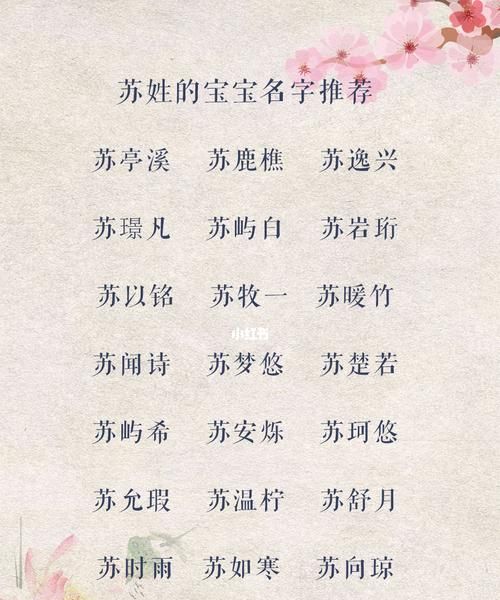 苏姓的宝宝名字推荐
苏亭溪 苏鹿樵 苏逸兴
苏璟凡 苏屿白 苏岩珩
苏以铭 苏牧一 苏暖竹
小红书
苏闻诗 苏梦悠 苏楚若
苏屿希 苏安烁 苏珂悠
苏允瑕 苏温柠 苏舒月
苏时雨 苏如寒 苏向琼